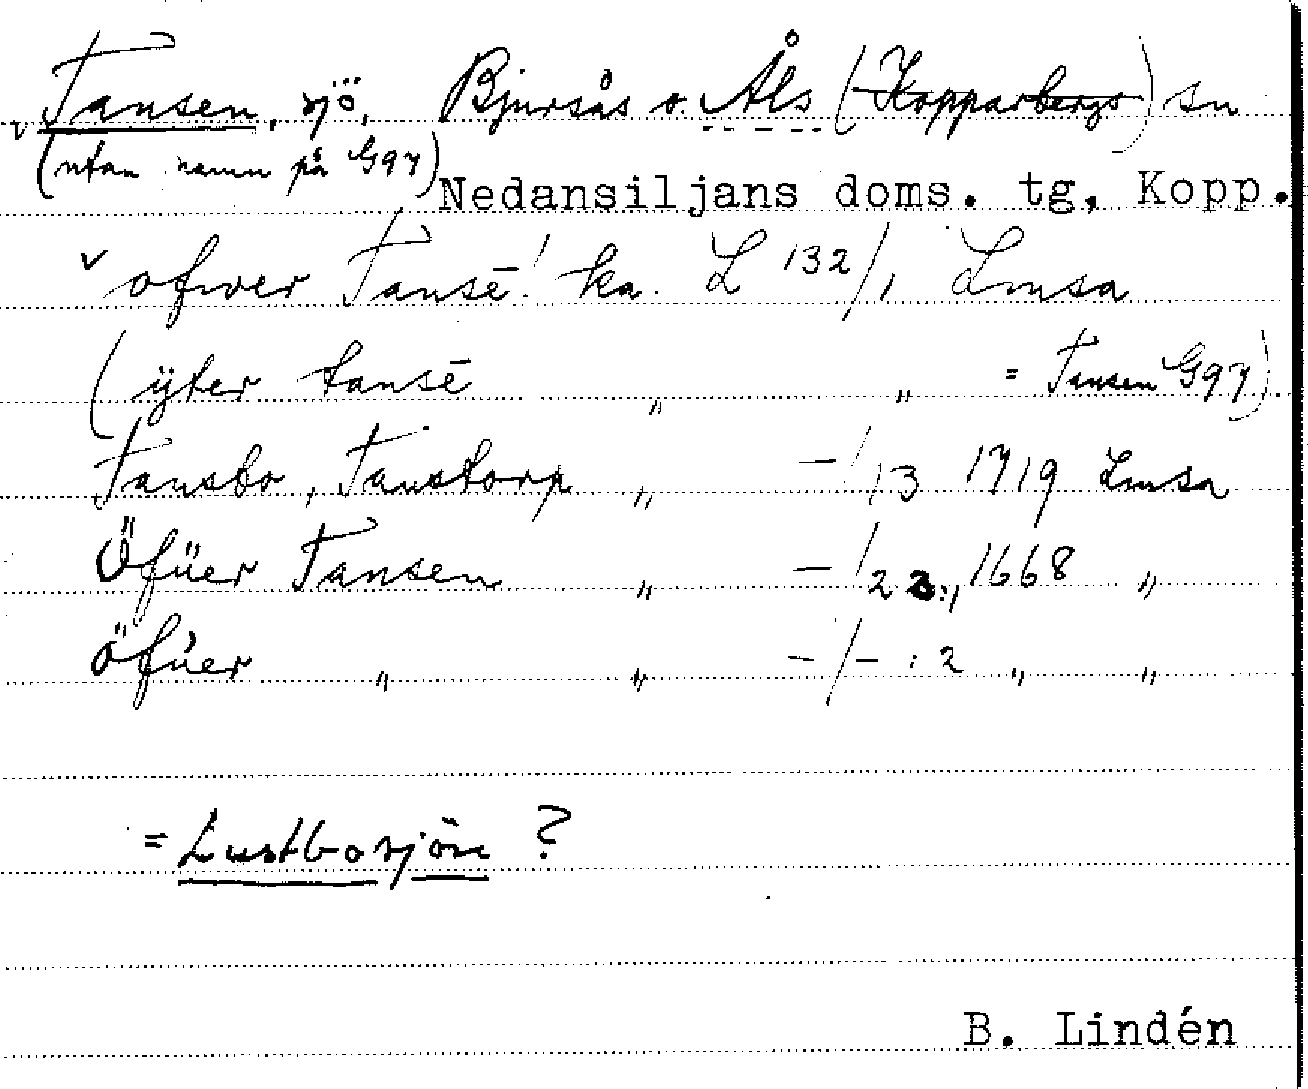 Tansen, sjö, Bjursås o. Åls (Kopparbergs) sn
(utan namn på G97) Nedansiljans doms. tg, Kopp.
v ofwer Tansē! ka. L 132/1 Lmsa
(ÿter tansē " " = Tansen G97)
Tansbo, Tanstorp " -/13 1719 Lmsa
Öfüer Tansen " -/22:1 1668 "
öfüer " " -/- : 2 " "
= Lustbosjön ?
B. Lindén